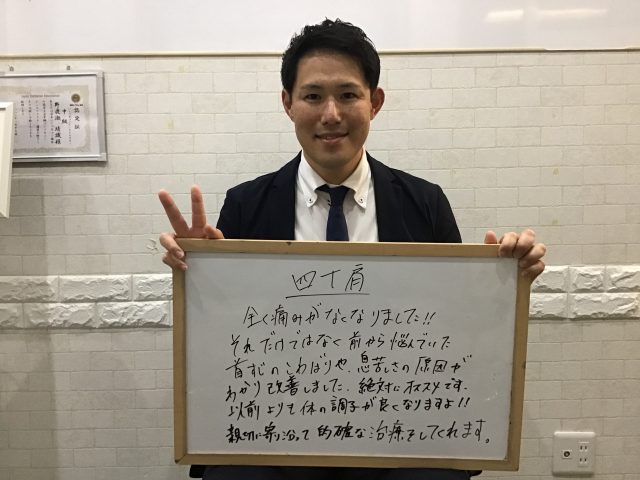 認定証
中級
四十肩
全く痛みがなくなりました!!
それだけではなく前から悩んでいた
首すじのこわばりや、息苦しさの原因が
わかり改善しました。絶対にオススメです。
以前よりも体の調子が良くなりますよ!!
親切に寄り沿って的確な治療をしてくれます。